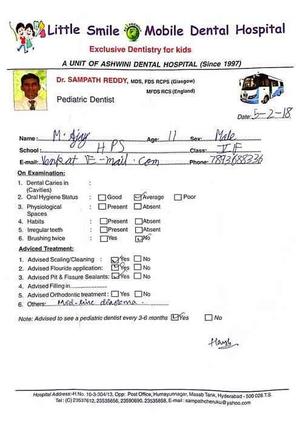 Little Smile Mobile Dental Hospital
Exclusive Dentistry for kids
A UNIT OF ASHWINI DENTAL HOSPITAL (Since 1997)
Dr. SAMPATH REDDY, MDS, FDS RCPS (Glasgow)
MFDS RCS (England)
Pediatric Dentist
Date: 5-2-18
Name: M. Ajay Age: 11 Sex: Male
School: HPS Class: V F
E-mail: Venkat E-mail.com Phone: 7893688336
On Examination:
1. Dental Caries in (Cavities) :
2. Oral Hygiene Status : Good Average Poor
3. Physiological Spaces : Present Absent
4. Habits : Present Absent
5. Irregular teeth : Present Absent
6. Brushing twice : Yes No
Adviced Treatment:
1. Advised Scaling/Cleaning : Yes No
2. Advised Flouride application: Yes No
3. Advised Pit & Fissure Sealants: Yes No
4. Advised Filling in
5. Advised Orthodontic treatment : Yes No
6. Others: Mid-line diastema
Note: Advised to see a pediatric dentist every 3-6 months Yes No
Hospital Address: H.No. 10-3-304/13, Opp: Post Office, Humayunnagar, Masab Tank, Hyderabad - 500 028 T.S.
Tel : (C) 23537612, 23535658, 23590690, 23535868, E-mail : sampathcheruku@yahoo.com